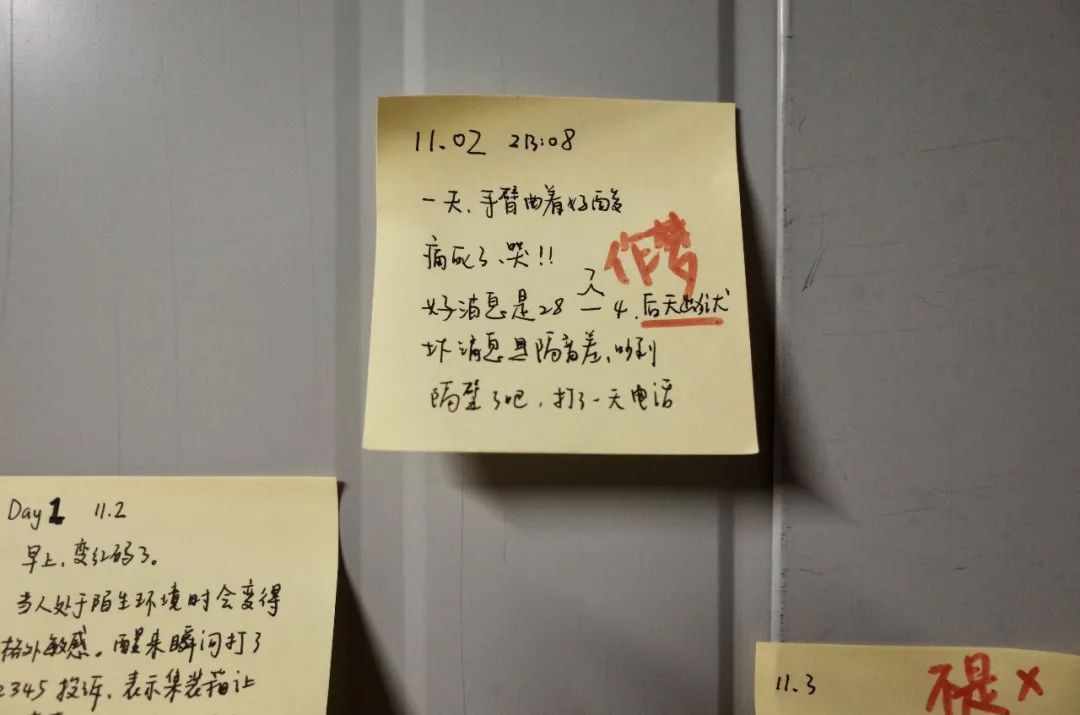 11.02 23:08
一天、手臂曲着好酸
痛死了、哭!!
作梦
好消息是28入一4.后天出伏
坏消息是隔音差、吵到
隔壁了吧、打了一天电话
Day1 11.2
早上,变红码了。
当人处于陌生环境时会变得
格外敏感。醒来瞬间打了
2345投诉,表示集装箱让
11.3 不是 ×